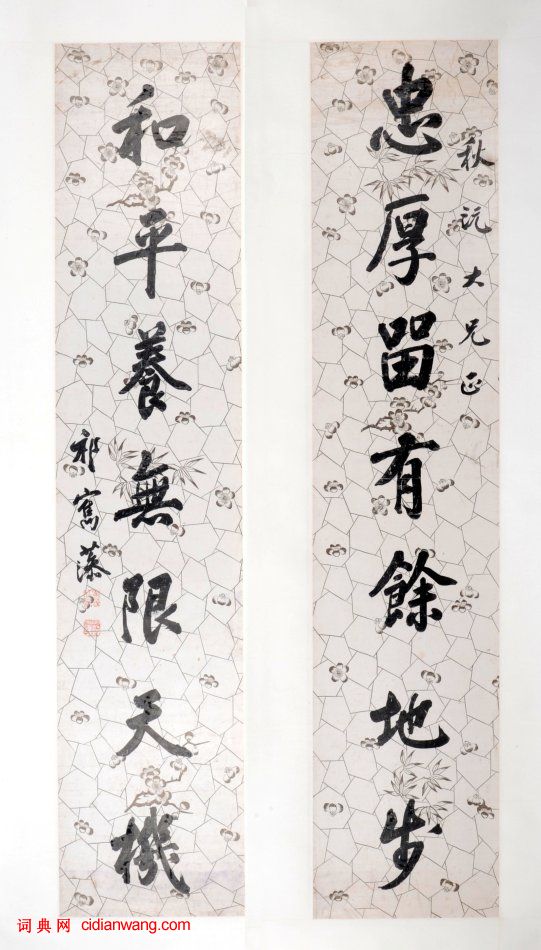 秋沅大兄正
忠厚留有餘地步
和平養無限天機
祁寯藻
词典网 cidianwang.com